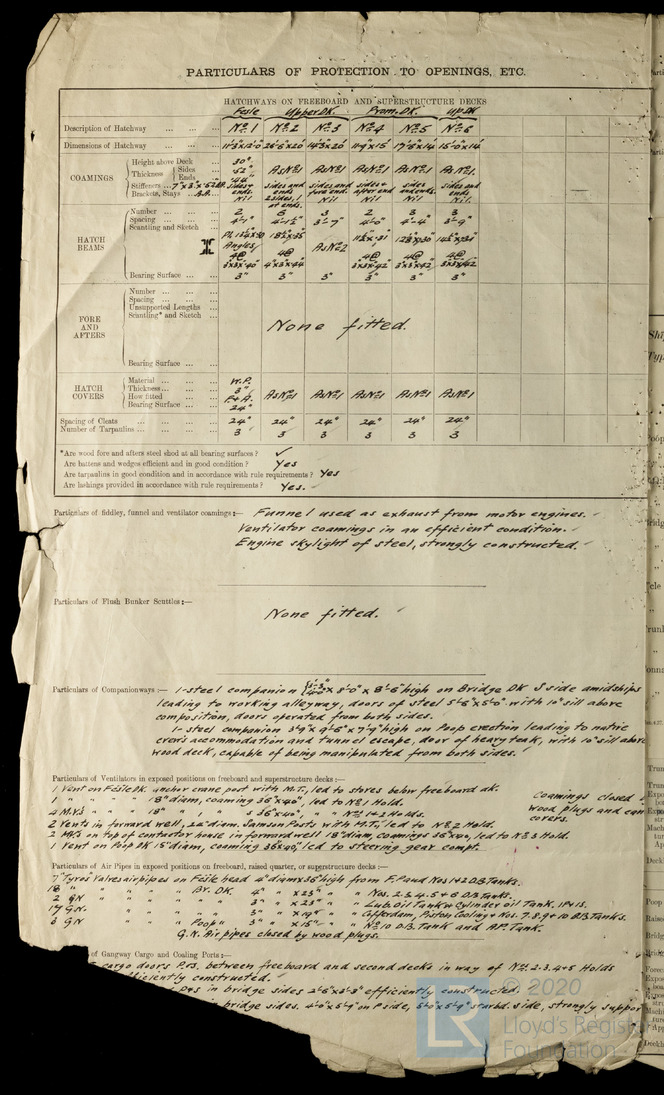 PARTICULARS OF PROTECTION TO OPENINGS, ETC.
HATCHWAYS ON FREEBOARD AND SUPERSTRUCTURE DECKS
Fcsle Upper DK. Prom. DK. Up. DK
Description of Hatchway ... ... ... No. 1 No. 2 No. 3 No. 4 No. 5 No. 6
Dimensions of Hatchway
COAMINGS
Height above Deck ... 30"
Thickness Sides .52" As No 1 As No 1 As No 1 As No 1 As No 1
Ends .44"
Stiffeners sides & ends sides and sides and fore end. sides & after end sides and ends. sides and ends.
Brackets, Stays Nil 2 sides, 1 at ends. Nil Nil Nil Nil
HATCH BEAMS
Number ... 2 6 3 2 3 3
Spacing ... 4'-1" 4'-1½" 3'-9" 4'-0" 4'-4" 3'-9"
Scantling and Sketch
Angles As No 2
4@ 4@ 4@ 4@ 4@
3"x3"x.40" 4"x3"x.44" 3"x3"x.42" 3"x3"x.42" 3"x3"x.42"
Bearing Surface ... 3" 3" 3" 3" 3" 3"
FORE AND AFTERS
Number ...
Spacing ...
Unsupported Lengths
Scantling* and Sketch
None fitted.
Bearing Surface ...
HATCH COVERS
Material ... W.P.
Thickness ... 3"
How fitted F & A. As No 1 As No 1 As No 1 As No 1 As No 1
Bearing Surface ...
Spacing of Cleats ... 24" 24" 24" 24" 24" 24"
Number of Tarpaulins ... 3 3 3 3 3 3
*Are wood fore and afters steel shod at all bearing surfaces? ✓
Are battens and wedges efficient and in good condition? Yes
Are tarpaulins in good condition and in accordance with rule requirements? Yes
Are lashings provided in accordance with rule requirements? Yes.
Particulars of fiddley, funnel and ventilator coamings:— Funnel used as exhaust from motor engines.
Ventilator coamings in an efficient condition.
Engine skylight of steel, strongly constructed.
Particulars of Flush Bunker Scuttles:—
None fitted.
Particulars of Companionways:— 1-steel companion x 8'-0" x 8'-6" high on Bridge DK S side amidships
leading to working alleyway, doors of steel 5'-6"x5'-0" with 10" sill above
composition, doors operated from both sides.
1- steel companion 3'-9"x 9'-6"x 7'-9" high on Poop erection leading to native
crew's accommodation and tunnel escape, door of heavy teak, with 10" sill above
wood deck, capable of being manipulated from both sides.
Particulars of Ventilators in exposed positions on freeboard and superstructure decks:—
1 Vent on Fcsle DK. anchor crane post with M.T., led to stores below freeboard dk.
1 " " " " 18" diam, coaming 36"x40", led to No 1 Hold.
Coamings closed
4 M.V's " " 18" " s 36"x40", " " Nos 1 & 2 Holds.
wood plugs and can
covers.
2 Vents in forward well, 22" diam. Samson Posts with M.T., led to No 2 Hold.
2 MVs on top of contactor house in forward well 18" diam, coamings 36"x40", led to No 3 Hold.
1 Vent on Poop DK 15" diam, coaming 36"x40", led to steering gear compt.
Particulars of Air Pipes in exposed positions on freeboard, raised quarter, or superstructure decks:—
7 "Tyros" Valves air pipes on Fcsle head 4" diam x 36" high from F. Peak Nos 1 & 2 D.B. Tanks.
18 " " " " " Br. DK. 4" " x 23" " " Nos. 2.3.4.5 & 6 D.B. Tanks.
2 GN " " " " " 3" " x 23" " " Lub. Oil Tank & Cylinder oil Tank. 1P & 1S
17 G.N. " " " " " 3" " x 19" " " Cofferdam, Piston Cooling & Nos. 7.8.9 & 10 D.B. Tanks.
3 GN " " " Poop " 3" " x 15" " " No 10 D.B. Tank and A.P. Tank.
G.N. Air pipes closed by wood plugs.
of Gangway Cargo and Coaling Ports:—
cargo doors P & S. between freeboard and second decks in way of Nos. 2.3.4 & 5 Holds
efficiently constructed.
in bridge sides 2'-6"x3'-3" efficiently constructed.
bridge sides. 4'-0"x5'-9" on P side, 5'-0"x5'-9" starbd. side, strongly suppor
© 2020
LR
Lloyd's Register
Foundation